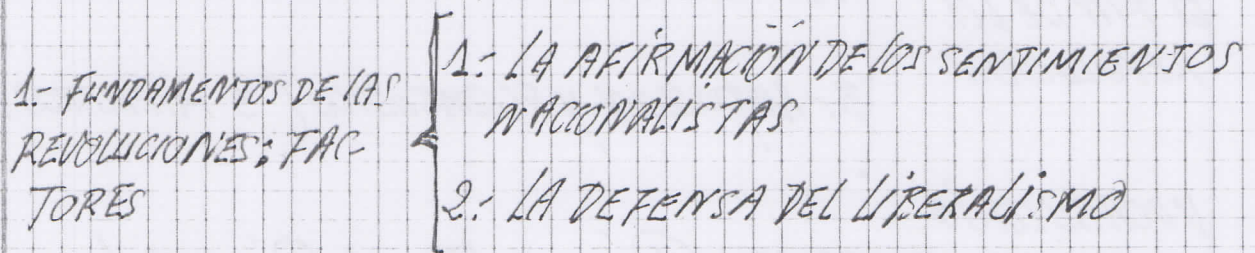 1.- FUNDAMENTOS DE LAS
REVOLUCIONES: FAC-
TORES
1.- LA AFIRMACIÓN DE LOS SENTIMIENTOS
NACIONALISTAS
2.- LA DEFENSA DEL LIBERALISMO